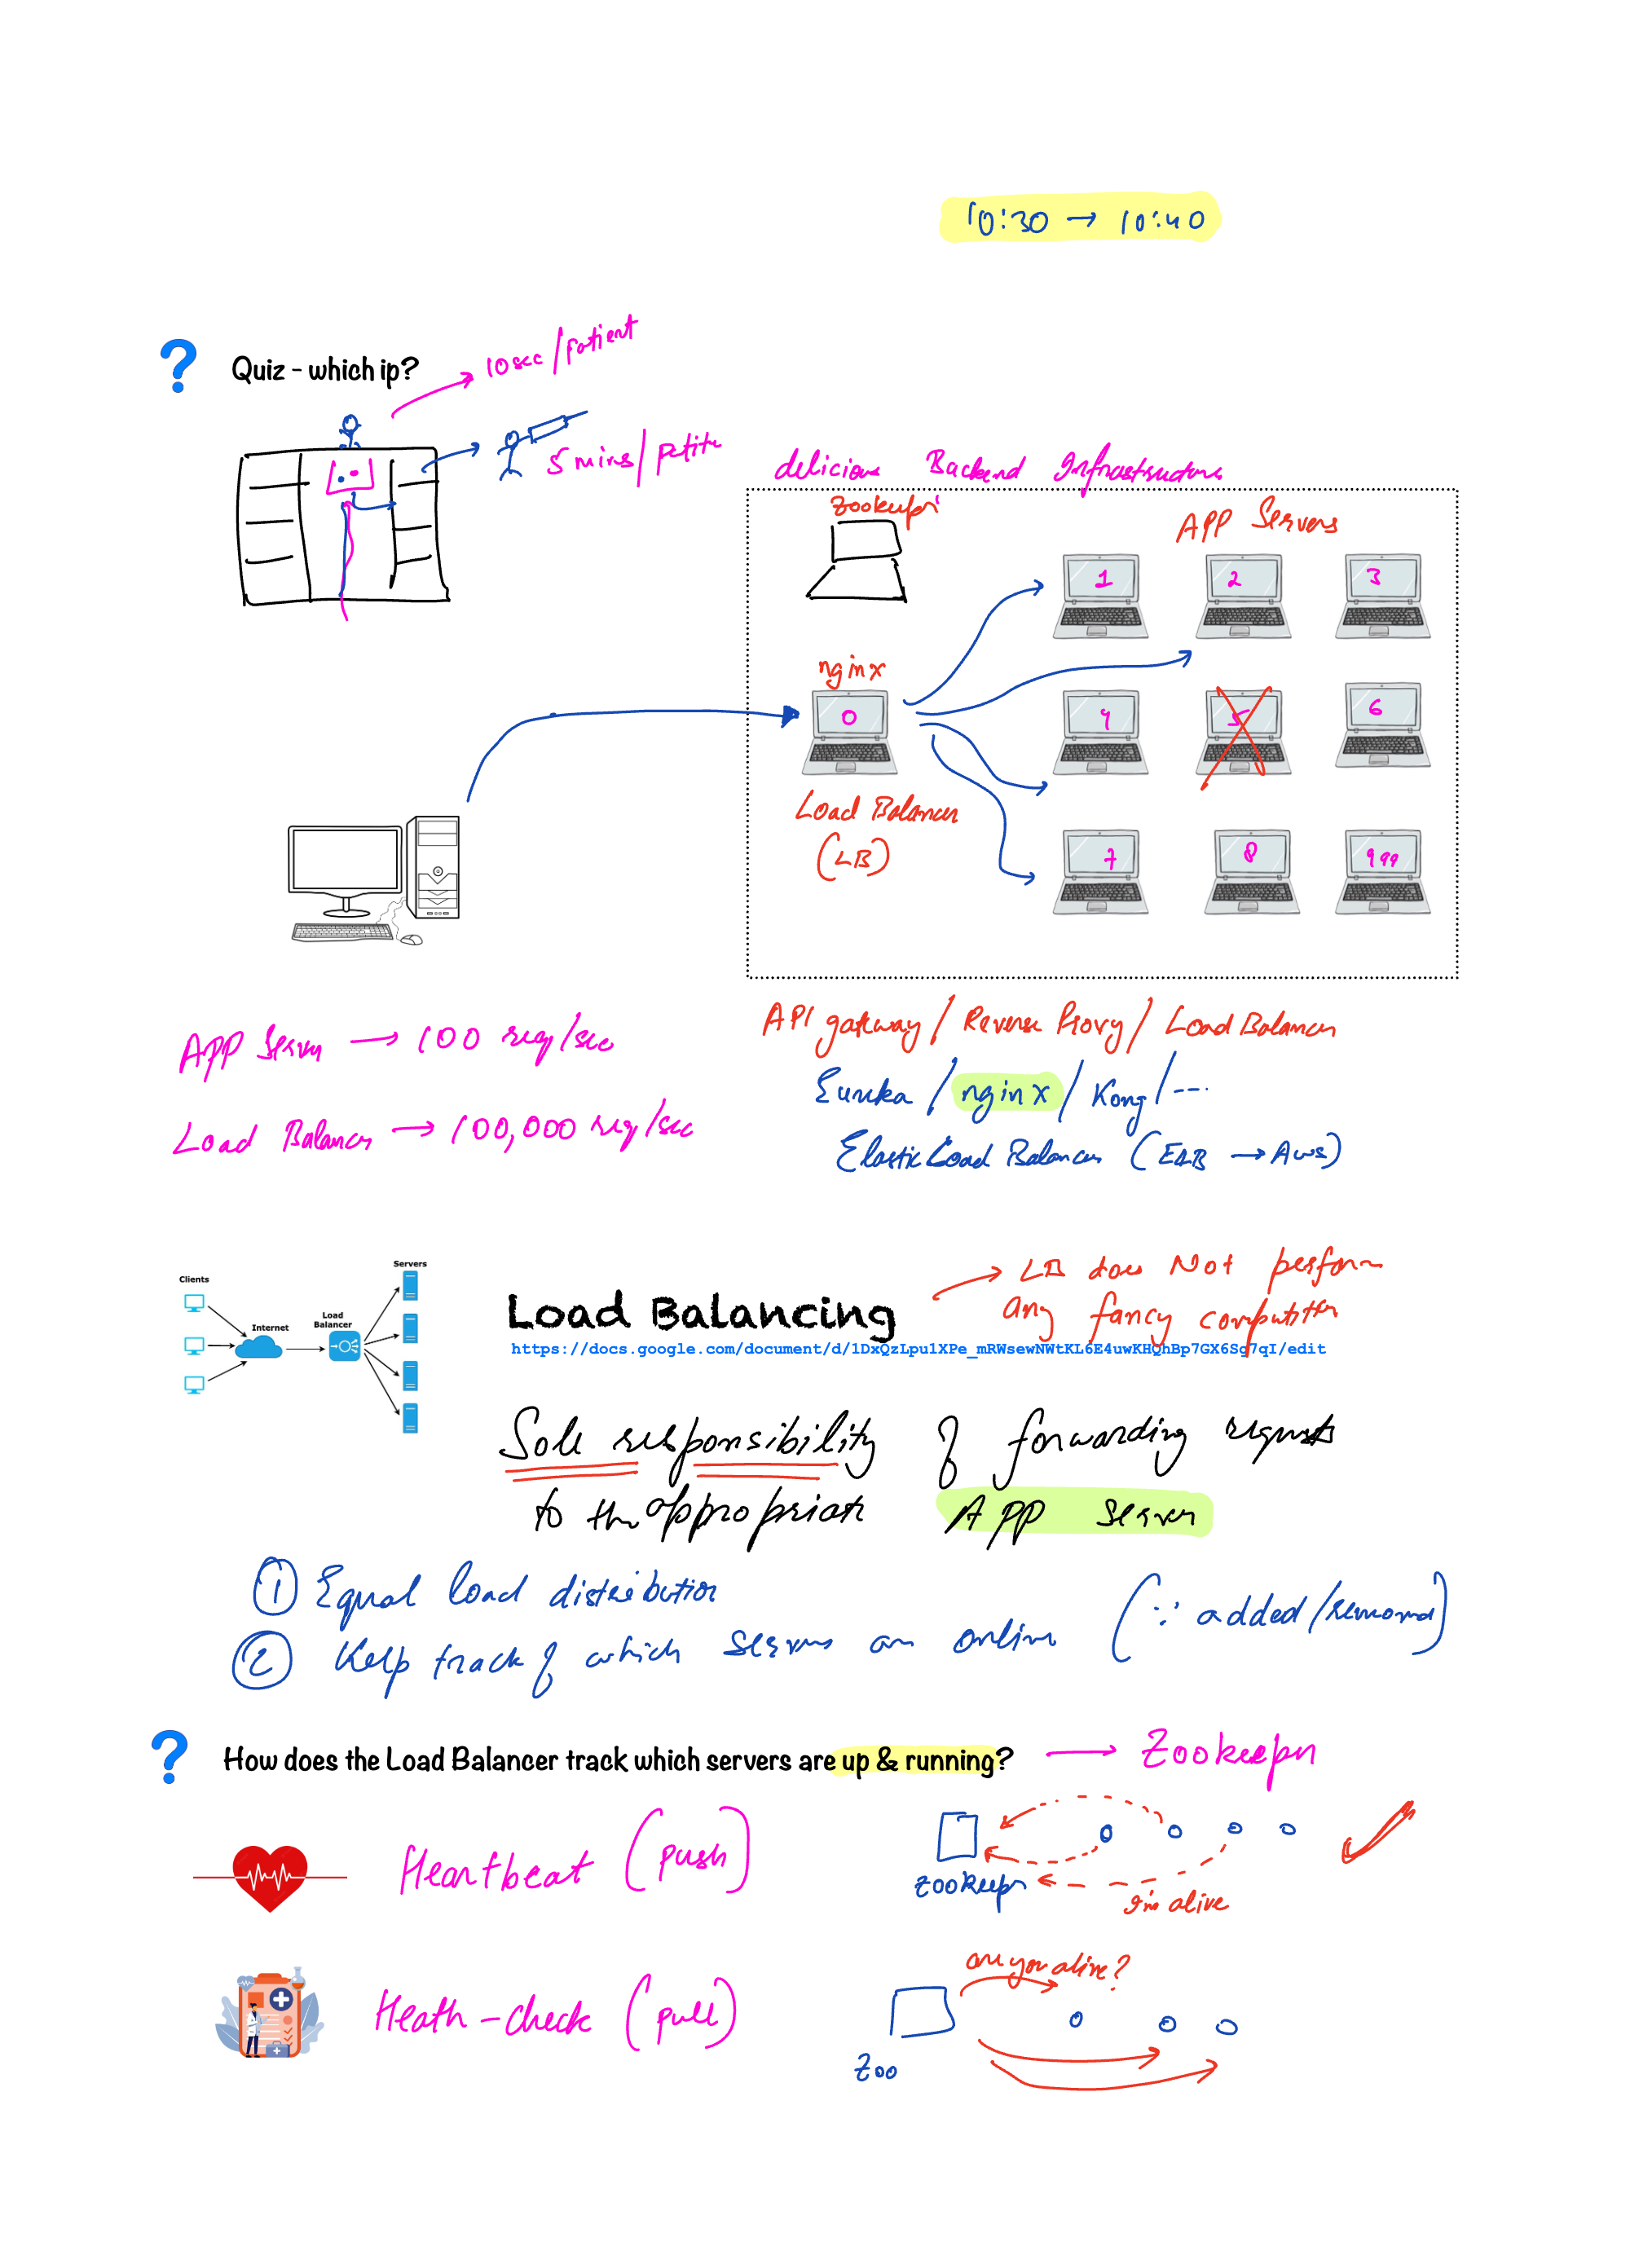 10:30 → 10:40
Quiz - which ip?
10sec/patient
5 mins/
delicious Backend Infrastructure
zookeeper
APP Servers
1 2 3
nginx
0
4 5 6
Load Balancer
(LB)
7 8 999
APP Server → 100 req/sec
Load Balancer → 100,000 req/sec
API gateway / Reverse Proxy / Load Balancer
Eureka / nginx / Kong / ----
Elastic Load Balancer (ELB → AWS)
Clients
Internet
Load
Balancer
Servers
Load Balancing
→ LB does Not perform
any fancy computation
https://docs.google.com/document/d/1DxQzLpu1XPe_mRWsewNWtKL6E4uwKHQhBp7GX6Sg7qI/edit
Sole responsibility of forwarding requests
to the appropriate APP Server
① Equal load distribution
② Keep track of which servers are online (∵ added/removed)
How does the Load Balancer track which servers are up & running? → Zookeeper
Heartbeat (push)
zookeeper
I'm alive
are you alive?
Heath-check (pull)
Zoo